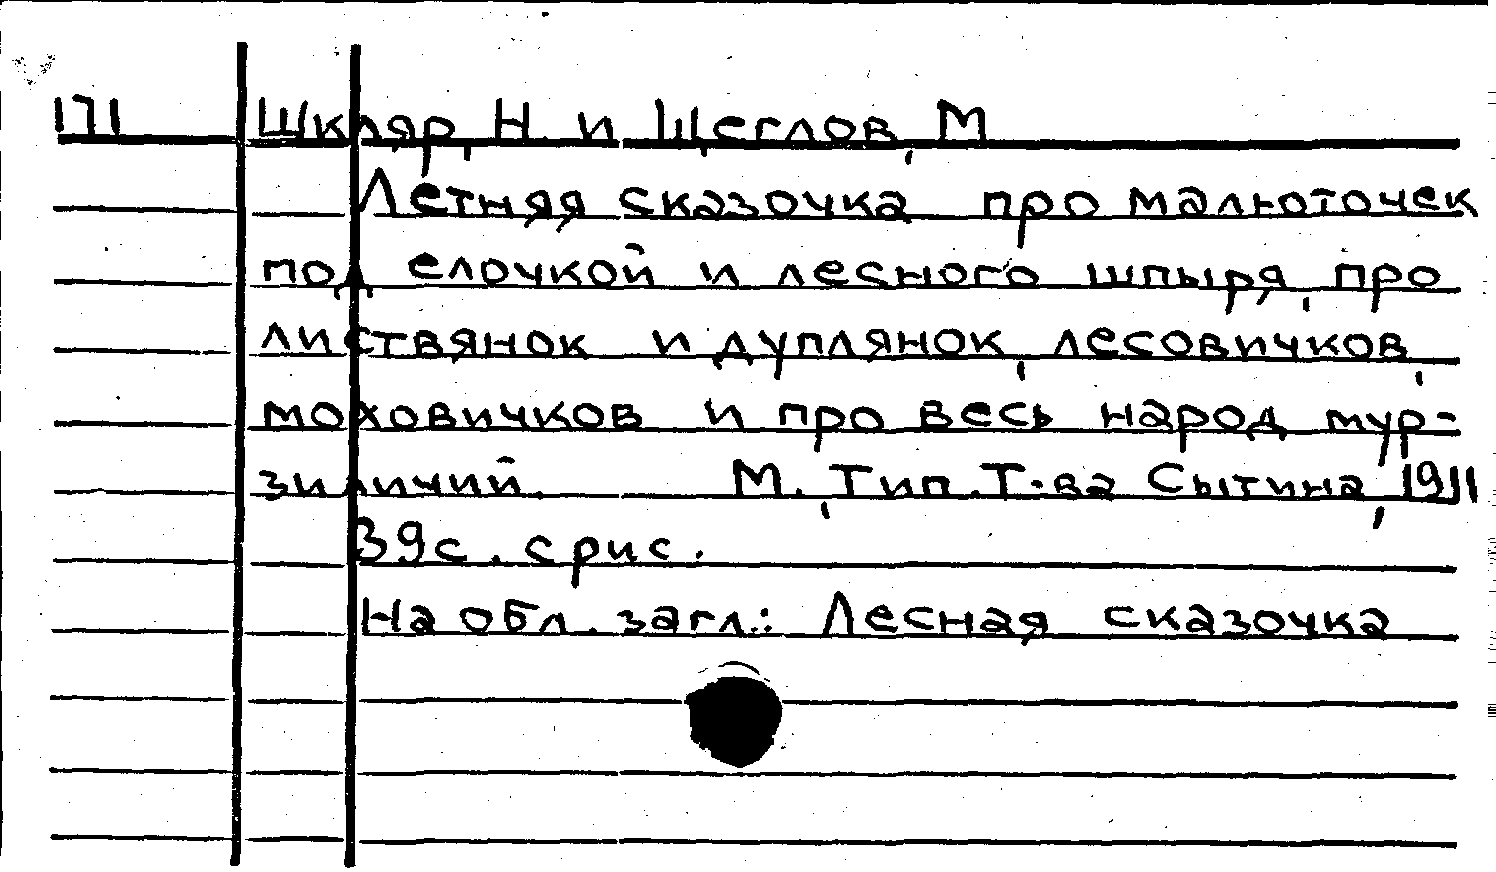 171 Шкляр, Н. и Щеглов, М
Летняя сказочка про малюточек
под елочкой и лесного шпыря, про
листвянок и дуплянок, лесовичков,
моховичков и про весь народ мур-
зиличий. М., Тип. Т-ва Сытина, 1911
39с. с рис.
На обл. загл.: Лесная сказочка